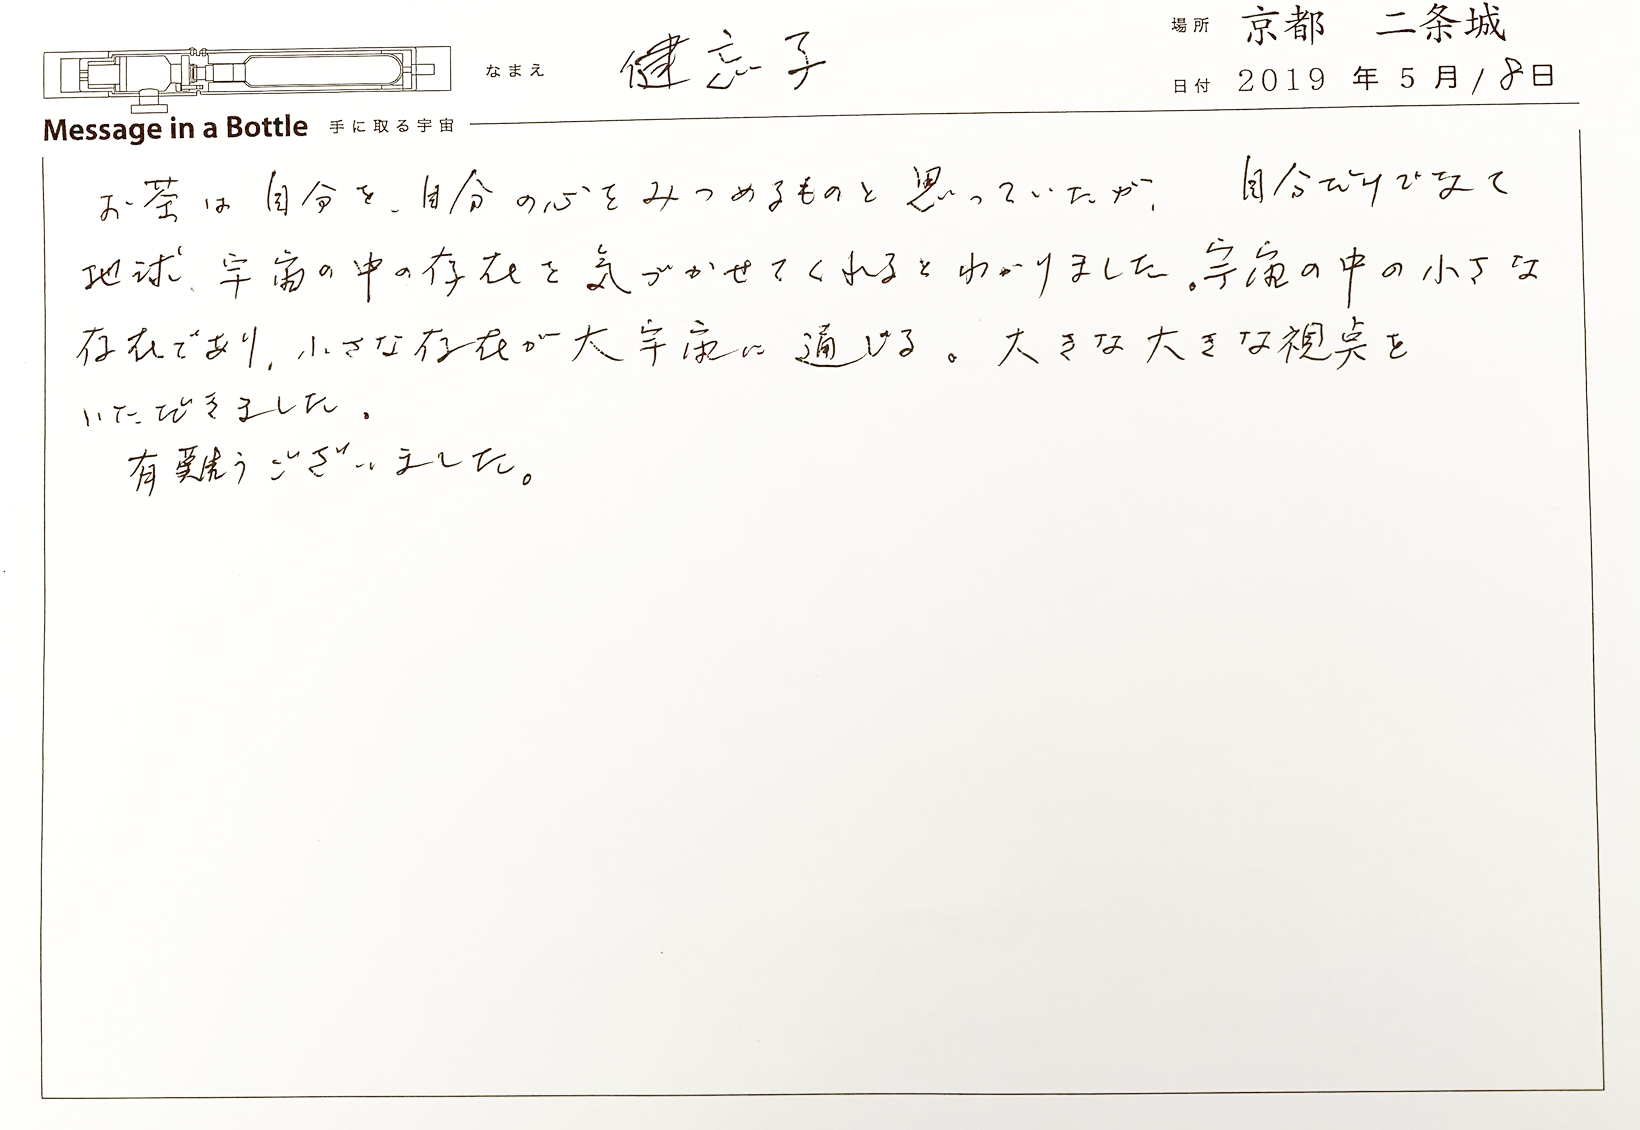 場所 京都 二条城
なまえ 健忘子
日付 2019 年 5 月 18日
Message in a Bottle 手に取る宇宙
お茶は自分を、自分の心をみつめるものと思っていたが、 自分だけでなくて
地球、宇宙の中の存在を気づかせてくれるとわかりました。宇宙の中の小さな
存在であり、小さな存在が大宇宙に通じる。大きな大きな視点を
いただきました。
有難うございました。